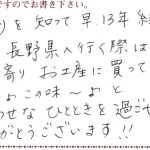 ですのでお書き下さい。
)を知って早、13年 経
長野県へ行く際は
寄り お土産に買って
よこの味〜よと
わせな ひとときを過ごせ
がとうございます!!